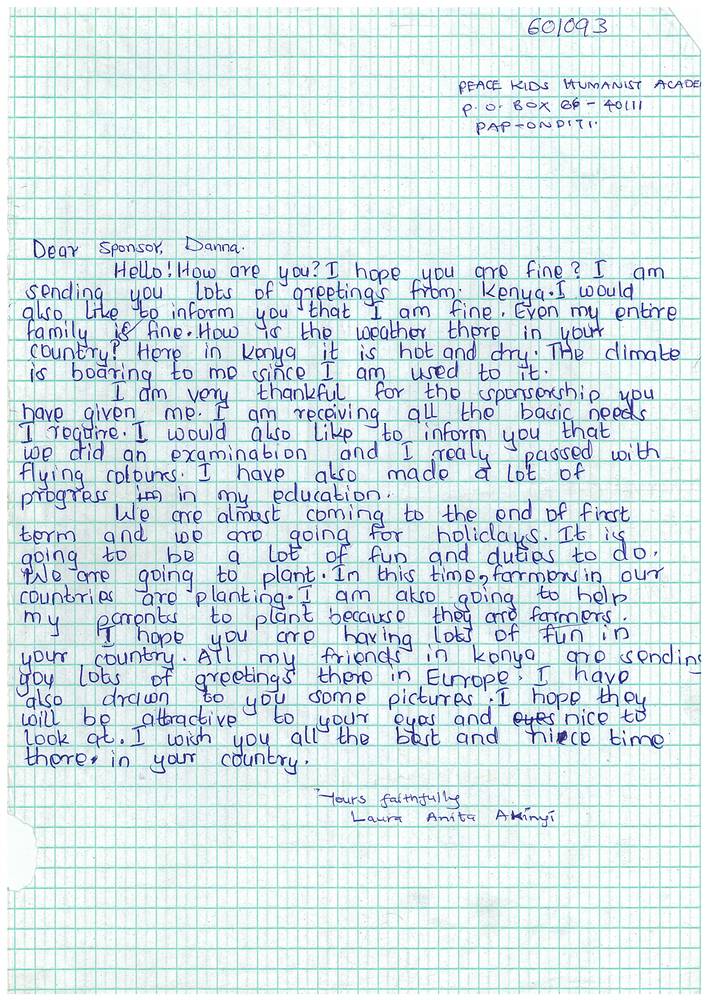 601093
PEACE KIDS HUMANIST ACADE
P. O. BOX 66 - 40111
PAP-ONDITI.
Dear Sponsor, Danna.
Hello! How are you? I hope you are fine? I am
sending you lots of greetings from. Kenya. I would
also like to inform you that I am fine. Even my entire
family is fine. How is the weather there in your
country? Here in Kenya it is hot and dry. The climate
is boaring to me since I am used to it.
I am very thankful for the sponsership you
have given me. I am receiving all the basic needs
I require. I would also like to inform you that
we did an examination and I realy passed with
flying colours. I have also made a lot of
progress in in my education.
We are almost coming to the end of first
term and we are going for holidays. It is
going to be a lot of fun and duties to do.
We are going to plant. In this time, farmers in our
countries are planting. I am also going to help
my parents to plant because they are farmers.
I hope you are having lots of fun in
your country. All my friends in Kenya are sending
you lots of greetings there in Europe. I have
also drawn to you some pictures. I hope they
will be attractive to your eyes and eyes nice to
look at. I wish you all the best and niece time
there. in your country.
Yours faithfully
Laura Anita Akinyi